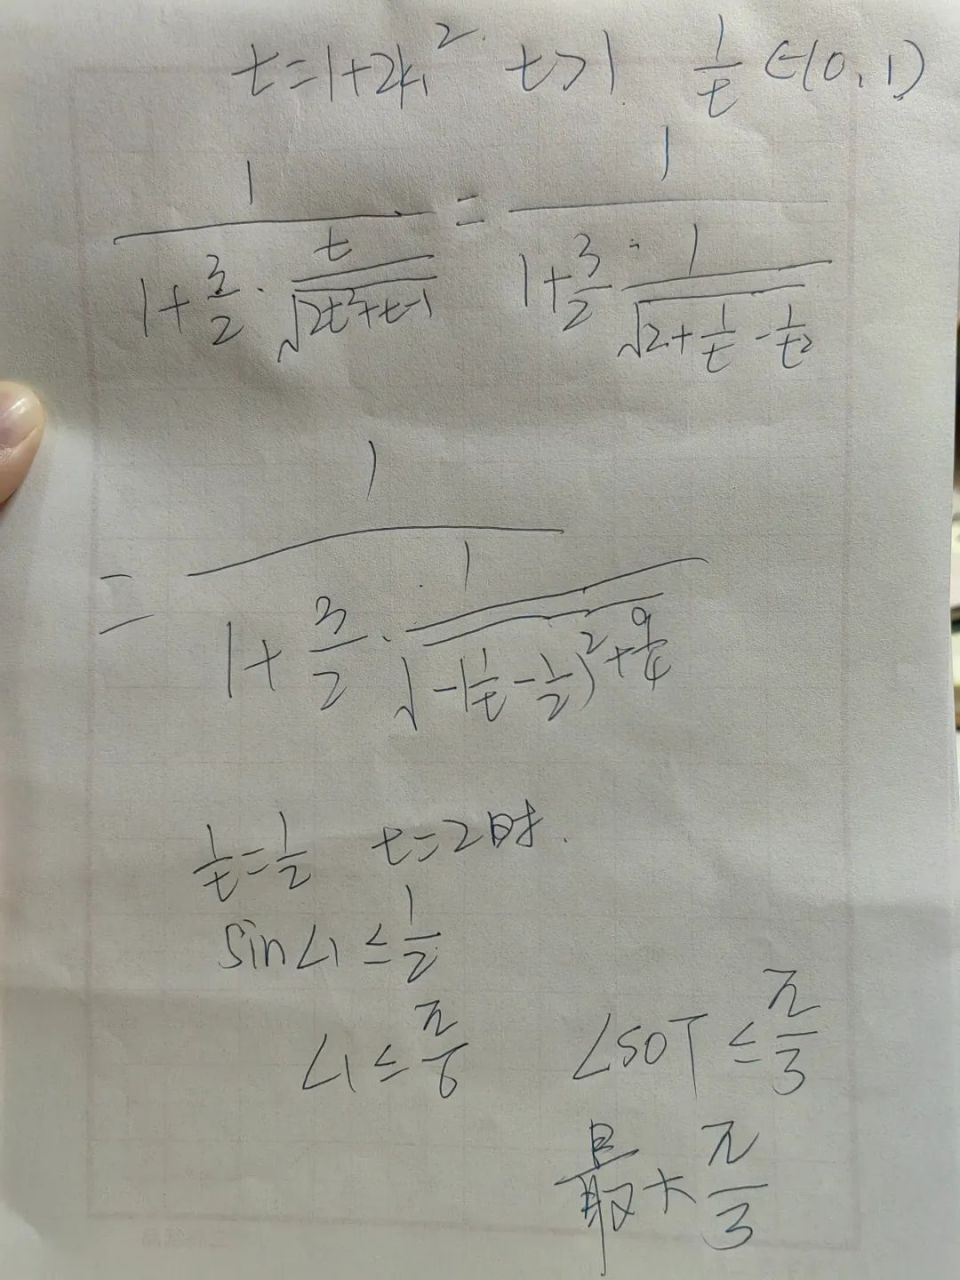 t=1+2k₁² t>1 1/t ∈(0,1)
1/(1+3/2·t/√(2t²+t-1)) = 1/(1+3/2·1/√(2+1/t-1/t²))
= 1/(1+3/2·1/√(-(1/t-1/2)²+9/4))
1/t=1/2 t=2时.
sin∠1≤1/2
∠1≤π/6 ∠SOT≤π/3
最大π/3